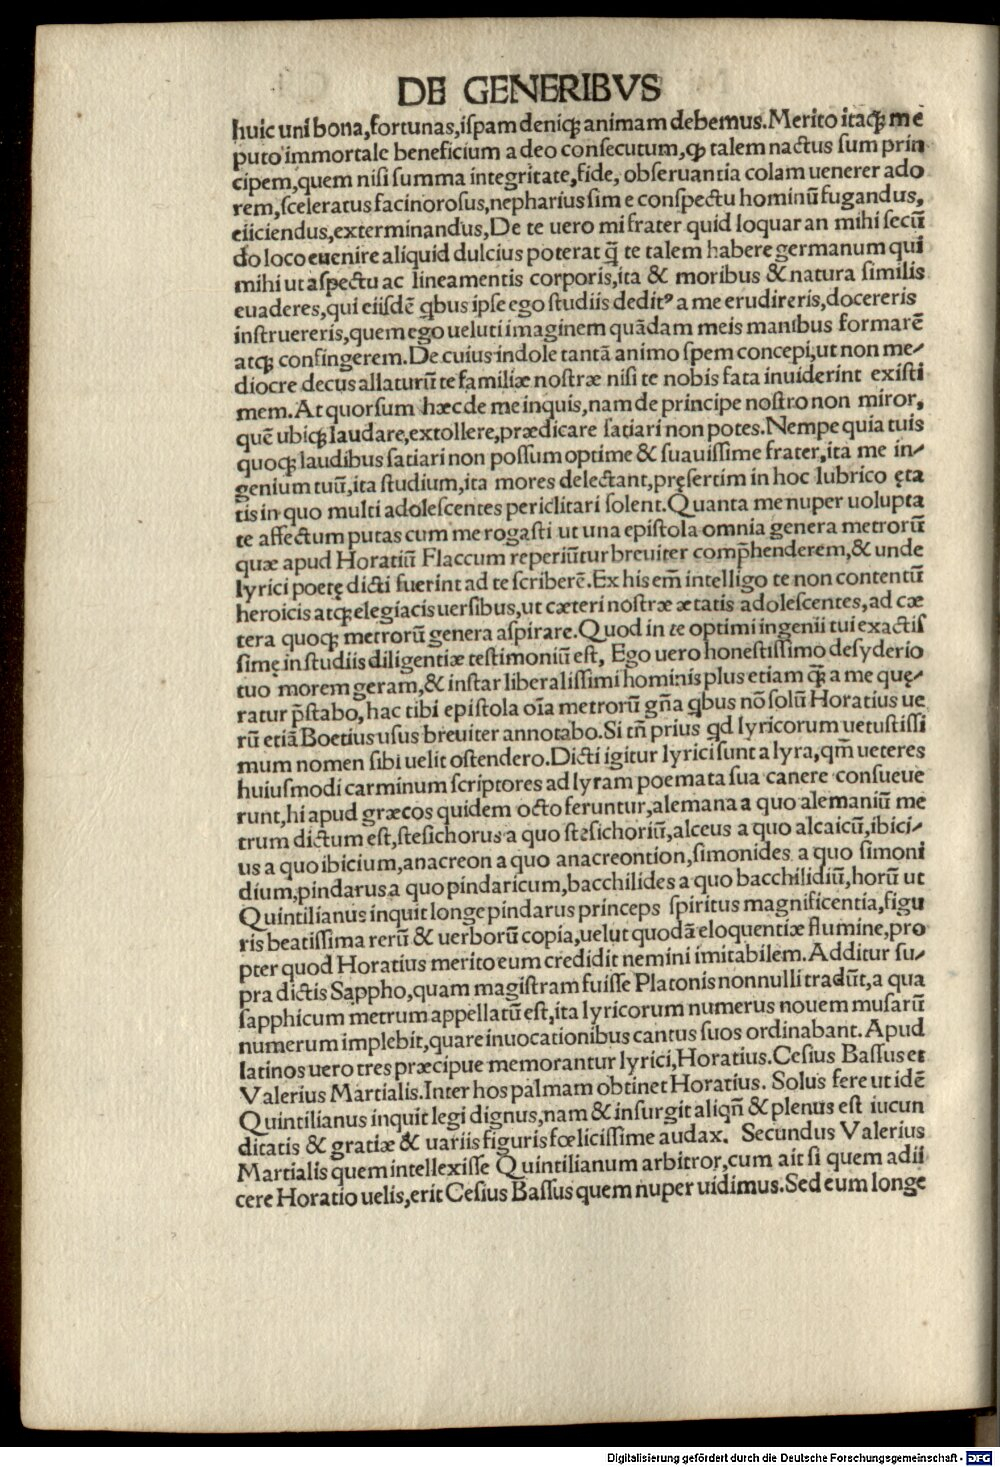 DE GENERIBVS
huic uni bona,fortunas,iſpam deniqꝫ animam debemus.Merito itaqꝫ me
puto immortale beneficium a deo conſecutum,ꝙ talem nactus ſum prin
cipem,quem niſi ſumma integritate,fide, obſeruantia colam uenerer ado
rem,ſceleratus facinoroſus,nepharius ſim e conſpectu hominū fugandus,
eiiciendus,exterminandus,De te uero mi frater quid loquar an mihi ſecū
do loco euenire aliquid dulcius poterat q̄ te talem habere germanum qui
mihi ut aſpectu ac lineamentis corporis,ita & moribus & natura ſimilis
euaderes,qui eiiſdē qbus ipſe ego ſtudiis deditꝰ a me erudireris,docereris
inſtruereris,quem ego ueluti imaginem quādam meis manibus formarē
atqꝫ confingerem.De cuius indole tantā animo ſpem concepi,ut non me⸗
diocre decus allaturū te familiæ noſtræ niſi te nobis fata inuiderint exiſti
mem.At quorſum hæc de me inquis,nam de principe noſtro non miror,
quē ubiqꝫ laudare,extollere,prædicare ſatiari non potes.Nempe quia tuis
quoqꝫ laudibus ſatiari non poſſum optime & ſuauiſſime frater,ita me in⸗
genium tuū,ita ſtudium,ita mores delectant,pręſertim in hoc lubrico ęta
tis in quo multi adoleſcentes periclitari ſolent.Quanta me nuper uolupta
te affectum putas cum me rogaſti ut una epiſtola omnia genera metrorū
quæ apud Horatiū Flaccum reperiūtur breuiter comp̄henderem,& unde
lyrici poetę dicti fuerint ad te ſcriberē.Ex his em̄ intelligo te non contentū
heroicis atqꝫ elegiacis uerſibus,ut cæteri noſtræ ætatis adoleſcentes,ad cæ
tera quoqꝫ metrorū genera aſpirare.Quod in te optimi ingenii tui exactiſ
ſimę in ſtudiis diligentiæ teſtimoniū eſt, Ego uero honeſtiſſimo deſyderio
tuo morem geram,& inſtar liberaliſſimi hominis plus etiam q̄ꝫ a me quę⸗
ratur p̄ſtabo,hac tibi epiſtola oīa metrorū gn̄a qbus nō ſolū Horatius ue
rū etiā Boetius uſus breuiter annotabo.Si tn̄ prius qd lyricorum uetuſtiſſi
mum nomen ſibi uelit oſtendero.Dicti igitur lyrici ſunt a lyra,qm̄ ueteres
huiuſmodi carminum ſcriptores ad lyram poemata ſua canere conſueue
runt,hi apud græcos quidem octo feruntur,alemana a quo alemaniū me
trum dictum eſt,ſteſichorus a quo ſteſichoriū,alceus a quo alcaicū,ibici⸗
us a quo ibicium,anacreon a quo anacreontion,ſimonides a quo ſimoni
dium,pindarus a quo pindaricum,bacchilides a quo bacchilidiū,horū ut
Quintilianus inquit longe pindarus princeps ſpiritus magnificentia,figu
ris beatiſſima rerū & uerborū copia,uelut quodā eloquentiæ flumine,pro
pter quod Horatius merito eum credidit nemini imitabilem.Additur ſu⸗
pra dictis Sappho,quam magiſtram fuiſſe Platonis nonnulli tradūt,a qua
ſapphicum metrum appellatū eſt,ita lyricorum numerus nouem muſarū
numerum implebit,quare inuocationibus cantus ſuos ordinabant.Apud
latinos uero tres præcipue memorantur lyrici,Horatius.Ceſius Baſſus et
Valerius Martialis.Inter hos palmam obtinet Horatius. Solus fere ut idē
Quintilianus inquit legi dignus,nam & inſurgit aliqn̄ & plenus eſt iucun
ditatis & gratiæ & uariis figuris fœliciſſime audax. Secundus Valerius
Martialis quem intellexiſſe Quintilianum arbitror,cum ait ſi quem adii
cere Horatio uelis,erit Ceſius Baſſus quem nuper uidimus.Sed eum longe
Digitalisierung gefördert durch die Deutsche Forschungsgemeinschaft - DFG